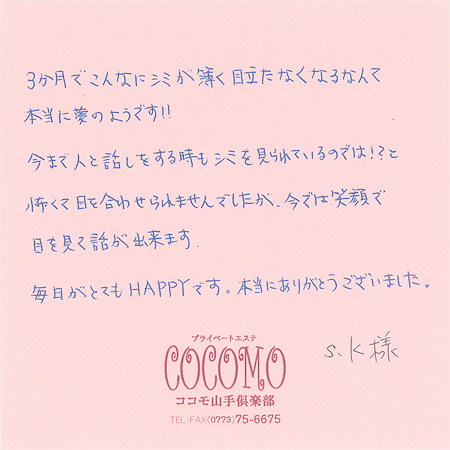 3か月でこんなにシミが薄く目立たなくなるなんて
本当に夢のようです!!
今まで人と話しをする時もシミを見られているのでは!?と
怖くて目を合わせられませんでしたが、今では笑顔で
目を見て話が出来ます。
毎日がとてもHAPPYです。本当にありがとうございました。
S.K様
プライベートエステ
COCOMO
ココモ山手倶楽部
TEL・FAX(0773)75-6675